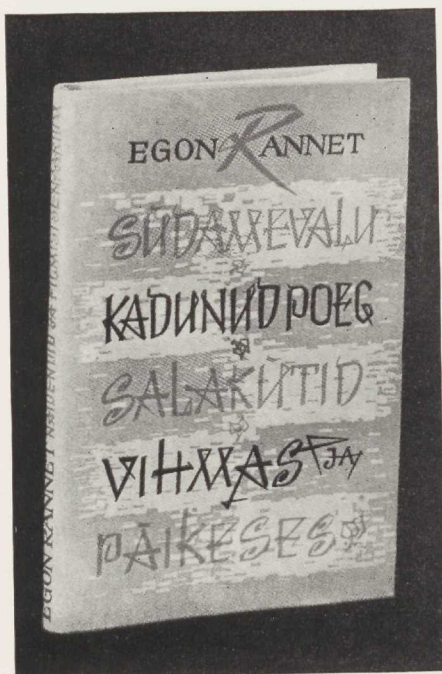 EGON RANNET
SÜDAMEVALU
KADUNUD POEG
SALAKÜTID
VIHMAS JA
PÄIKESES
EGON RANNET NÄIDENDID JA